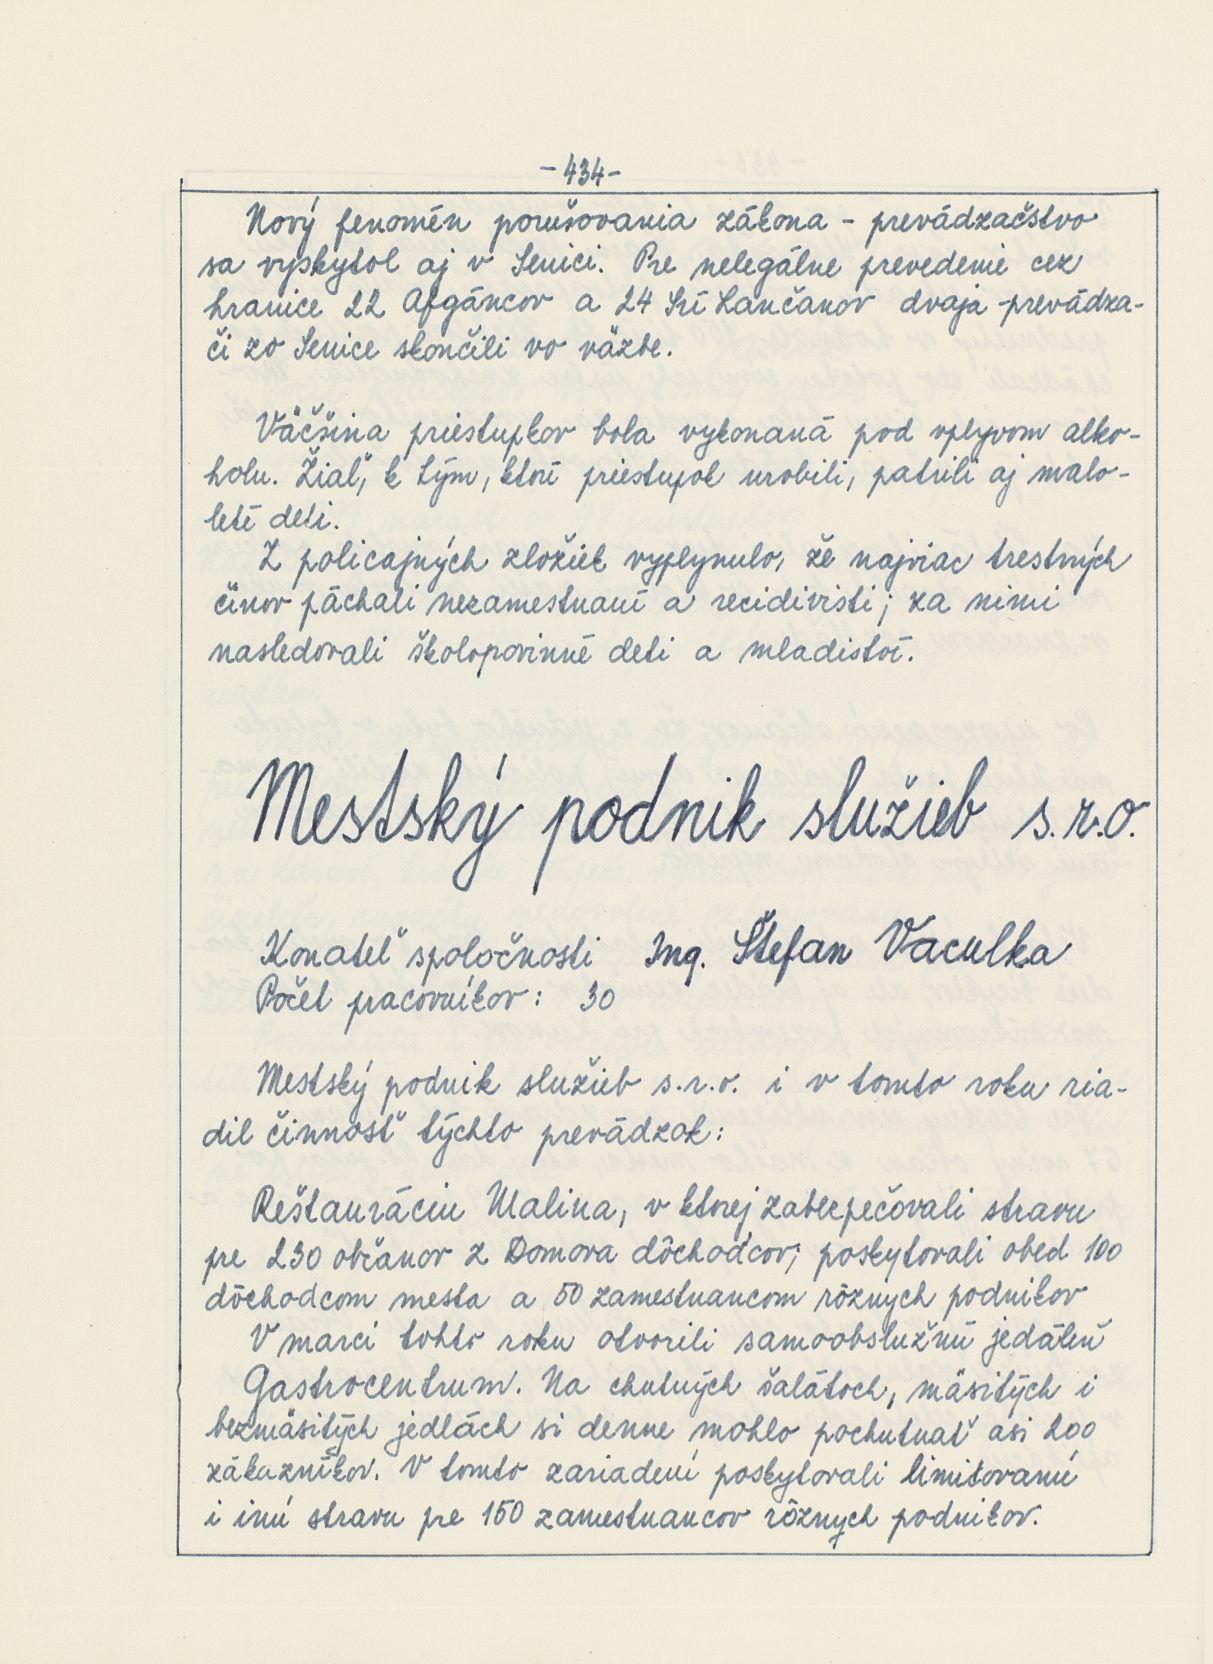 -434-
Nový fenomén porušovania zákona - prevádzačstvo
sa vyskytol aj v Senici. Pre nelegálne prevedenie cez
hranice 22 Afgáncov a 24 Srí Lančanov dvaja prevádza-
či zo Senice skončili vo väzbe.
Väčšina priestupkov bola vykonaná pod vplyvom alko-
holu. Žiaľ, k tým, ktorí priestupok urobili, patrili aj malo-
leté deti.
Z policajných zložiek vyplynulo, že najviac trestných
činov páchali nezamestnaní a recidivisti; za nimi
nasledovali školopovinné deti a mladiství.
Mestský podnik služieb s.r.o.
Konateľ spoločnosti Ing. Štefan Vaculka
Počet pracovníkov: 30
Mestský podnik služieb s.r.o. i v tomto roku ria-
dil činnosť týchto prevádzok:
Reštauráciu Malina, v ktorej zabezpečovali stravu
pre 230 občanov z Domova dôchodcov; poskytovali obed 100
dôchodcom mesta a 50 zamestnancom rôznych podnikov
V marci tohto roku otvorili samoobslužnú jedáleň
Gastrocentrum. Na chutných šalátoch, mäsitých i
bezmäsitých jedlách si denne mohlo pochutnať asi 200
zákazníkov. V tomto zariadení poskytovali limitovanú
i inú stravu pre 150 zamestnancov rôznych podnikov.